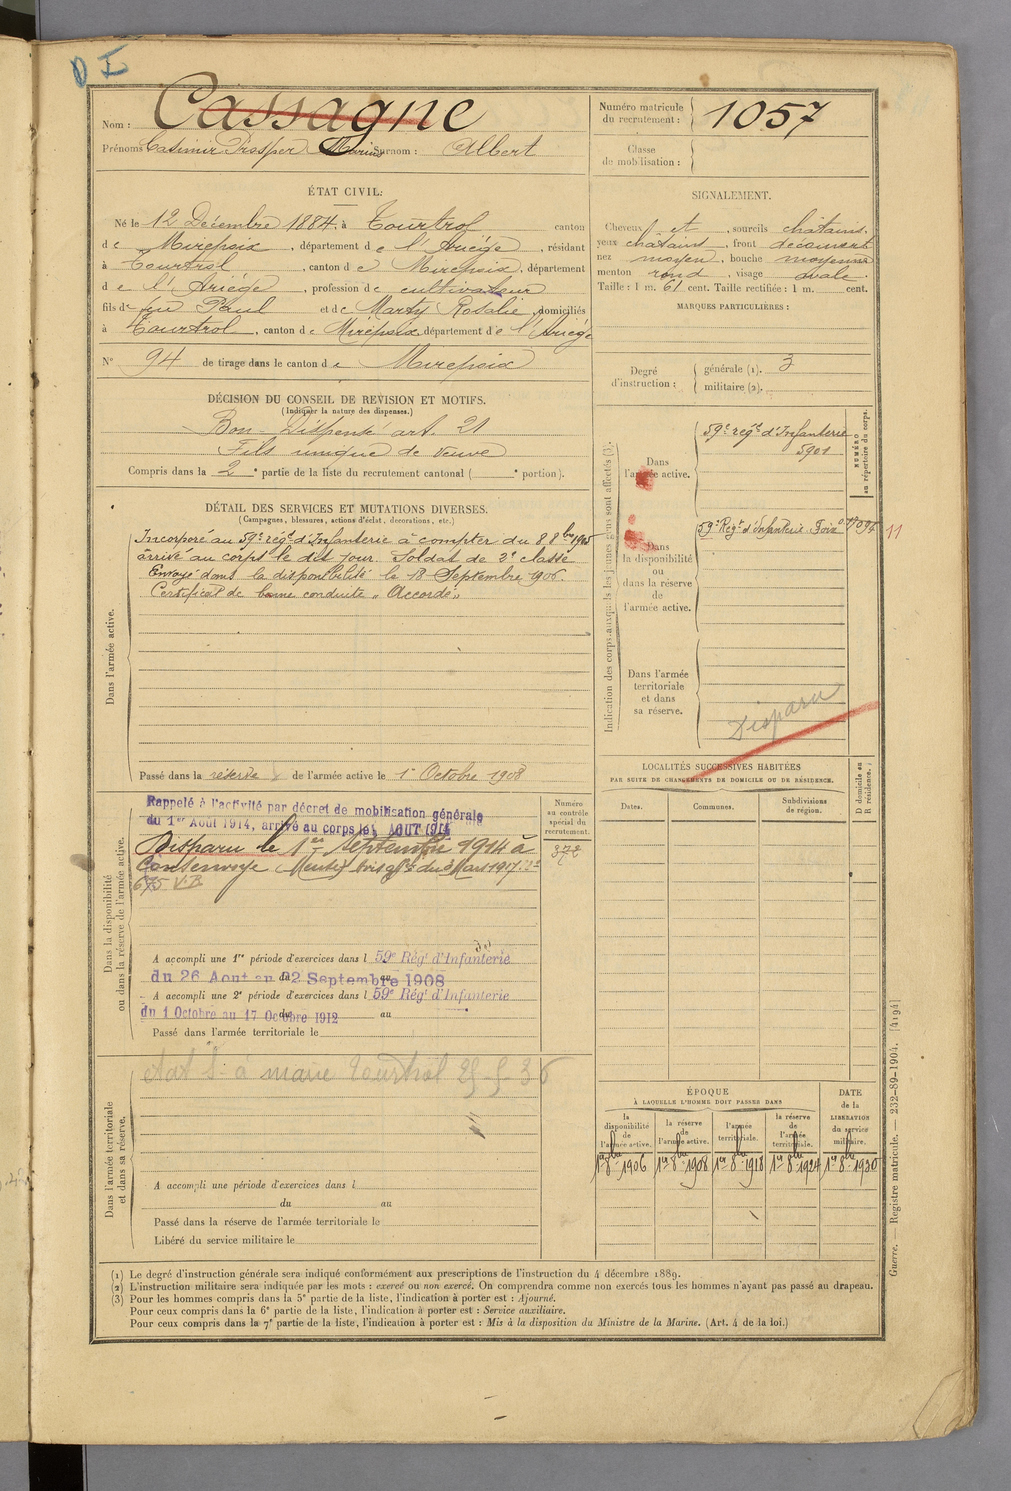 D I
Nom : Cassagne
Prénoms Casimir Prosper Marius Surnom : Albert
Numéro matricule du recrutement : 1057
Classe de mobilisation :
ÉTAT CIVIL:
Né le 12 Décembre 1884, à Tourtrol canton
de Mirepoix, département de l'Ariège, résidant
à Tourtrol, canton de Mirepoix, département
de l'Ariège, profession de cultivateur
fils de feu Paul et de Marty Rosalie, domiciliés
à Tourtrol, canton de Mirepoix département de l'Ariège
N° 94 de tirage dans le canton de Mirepoix
DÉCISION DU CONSEIL DE REVISION ET MOTIFS.
(Indiquer la nature des dispenses.)
Bon - Dispensé art. 21
Fils unique de veuve
Compris dans la 2e partie de la liste du recrutement cantonal ( e portion).
SIGNALEMENT.
Cheveux et , sourcils châtains.
yeux châtains, front découvert
nez moyen, bouche moyenne
menton rond, visage ovale.
Taille : 1 m. 61 cent. Taille rectifiée : 1 m. cent.
MARQUES PARTICULIÈRES :
Degré d'instruction : générale (1). 3
militaire (2).
DÉTAIL DES SERVICES ET MUTATIONS DIVERSES.
(Campagnes, blessures, actions d'éclat, décorations, etc.)
Dans l'armée active.
Incorporé au 59e régt d'Infanterie à compter du 8 8bre 1905
arrivé au corps le dit jour. Soldat de 2e classe
Envoyé dans la disponibilité le 18 Septembre 1906.
Certificat de bonne conduite "Accordé"
Passé dans la réserve de l'armée active le 1er Octobre 1908
Indication des corps auxquels les jeunes gens sont affectés (3).
NUMÉRO au répertoire du corps.
Dans l'armée active.
59e régt d'Infanterie
5901
Dans la disponibilité ou dans la réserve de l'armée active.
59e Regt d'Infanterie Foix
11
Dans l'armée territoriale et dans sa réserve.
Disparu
Dans la disponibilité ou dans la réserve de l'armée active.
Rappelé à l'activité par décret de mobilisation générale
du 1er Aout 1914, arrivé au corps le AOUT 1914
Disparu le 1er Septembre 1914 à
Consenvoye (Meuse) avis du Mars 1917.
675 V.B
Numéro au contrôle spécial du recrutement.
A accompli une 1re période d'exercices dans l 59e Régt d'Infanterie
du 26 Aout au 22 Septembre 1908
A accompli une 2e période d'exercices dans l 59e Régt d'Infanterie
du 1 Octobre au 17 Octobre 1912
Passé dans l'armée territoriale le
LOCALITÉS SUCCESSIVES HABITÉES
PAR SUITE DE CHANGEMENTS DE DOMICILE OU DE RÉSIDENCE.
Dates. Communes. Subdivisions de région.
D domicile ou R résidence.
Dans l'armée territoriale et dans sa réserve.
à mairie Tourtrol
A accompli une période d'exercices dans l
du au
Passé dans la réserve de l'armée territoriale le
Libéré du service militaire le
ÉPOQUE
À LAQUELLE L'HOMME DOIT PASSER DANS
la disponibilité de l'armée active.
la réserve de l'armée active.
l'armée territoriale.
la réserve de l'armée territoriale.
DATE de la LIBÉRATION du service militaire.
1er 8bre 1906 1er 8bre 1908 1er 8bre 1918 1er 8bre 1924 1er 8bre 1930
(1) Le degré d'instruction générale sera indiqué conformément aux prescriptions de l'instruction du 4 décembre 1889.
(2) L'instruction militaire sera indiquée par les mots : exercé ou non exercé. On comprendra comme non exercés tous les hommes n'ayant pas passé au drapeau.
(3) Pour les hommes compris dans la 5e partie de la liste, l'indication à porter est : Ajourné.
Pour ceux compris dans la 6e partie de la liste, l'indication à porter est : Service auxiliaire.
Pour ceux compris dans la 7e partie de la liste, l'indication à porter est : Mis à la disposition du Ministre de la Marine. (Art. 4 de la loi.)
Guerre. — Registre matricule. — 232-89-1904. [4194]